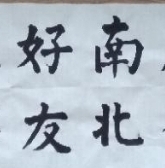 南北
好友